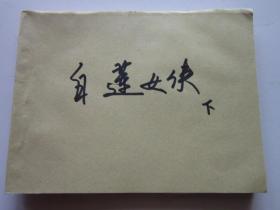 白莲女侠
下